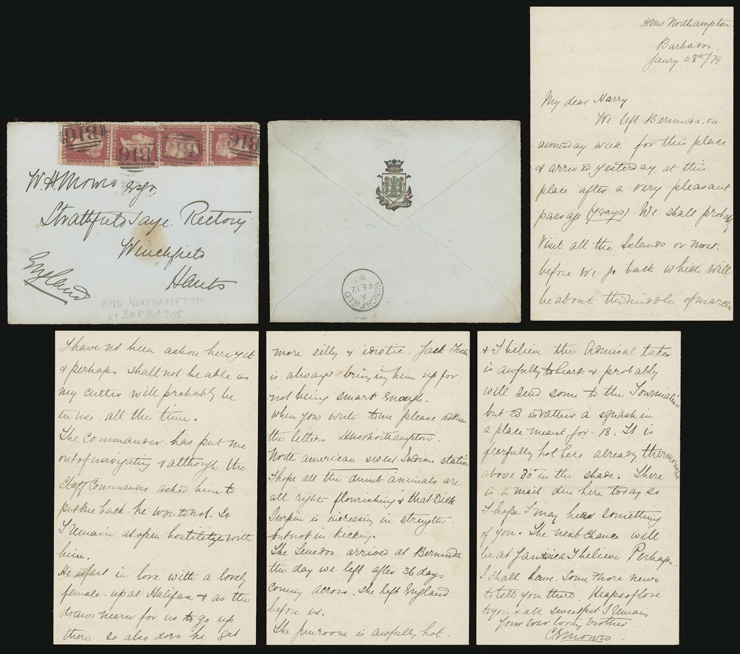 B16
B16
B16
B16
W H Mowis Esqr.
Strathfield Saye Rectory
Winchfield
Hants
England
HMS NORTHAMPTON
AT BARBADOS
WINCHFIELD
A
FE 12
HMS Northampton
Barbados
Janry 28th/79
My dear Harry
We left Bermuda on
week for this place
& arrived yesterday at this
place after a very pleasant
passage (7 days) We shall probably
visit all the Islands or most
before we go back which will
be about the middle of march
I have not been ashore here yet
& perhaps shall not be able as
my cutter will probably be
in use all the time.
The Commander has put me
out of navigating & although the
Staff Commander asked him to
put me back he would not. So
I remain at open hostilities with
him.
He is fast in love with a lovely
female up at Halifax & as the
draws nearer for us to go up
there so also does he get
more silly & idiotic. Jack Fish
is always bringing him up for
not being smart enough.
When you write to me please address
the letters HMS Northampton.
North American & West Indian station
I hope all the dumb animals are
all right & flourishing & that Dick
is increasing in strength
but not in
The Tenedos arrived at Bermuda
the day we left after 36 days
coming across. She left England
before us.
The gunroom is awfully hot.
& I believe the Admiral takes
it awfully to heart & probably
will send some to the Tourmaline
but 25 is rather a squash in
a place meant for 18. It is
fearfully hot here already thermometer
above 80° in the shade. There
is a mail due here today so
I hope I may hear something
of you. The next chance will
be at Jamaica I believe Perhaps
I shall have some more news
to tell you there. Heaps of love
to you all I remain
Your ever loving brother